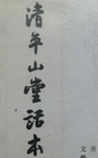 清平山堂話本
洪
文